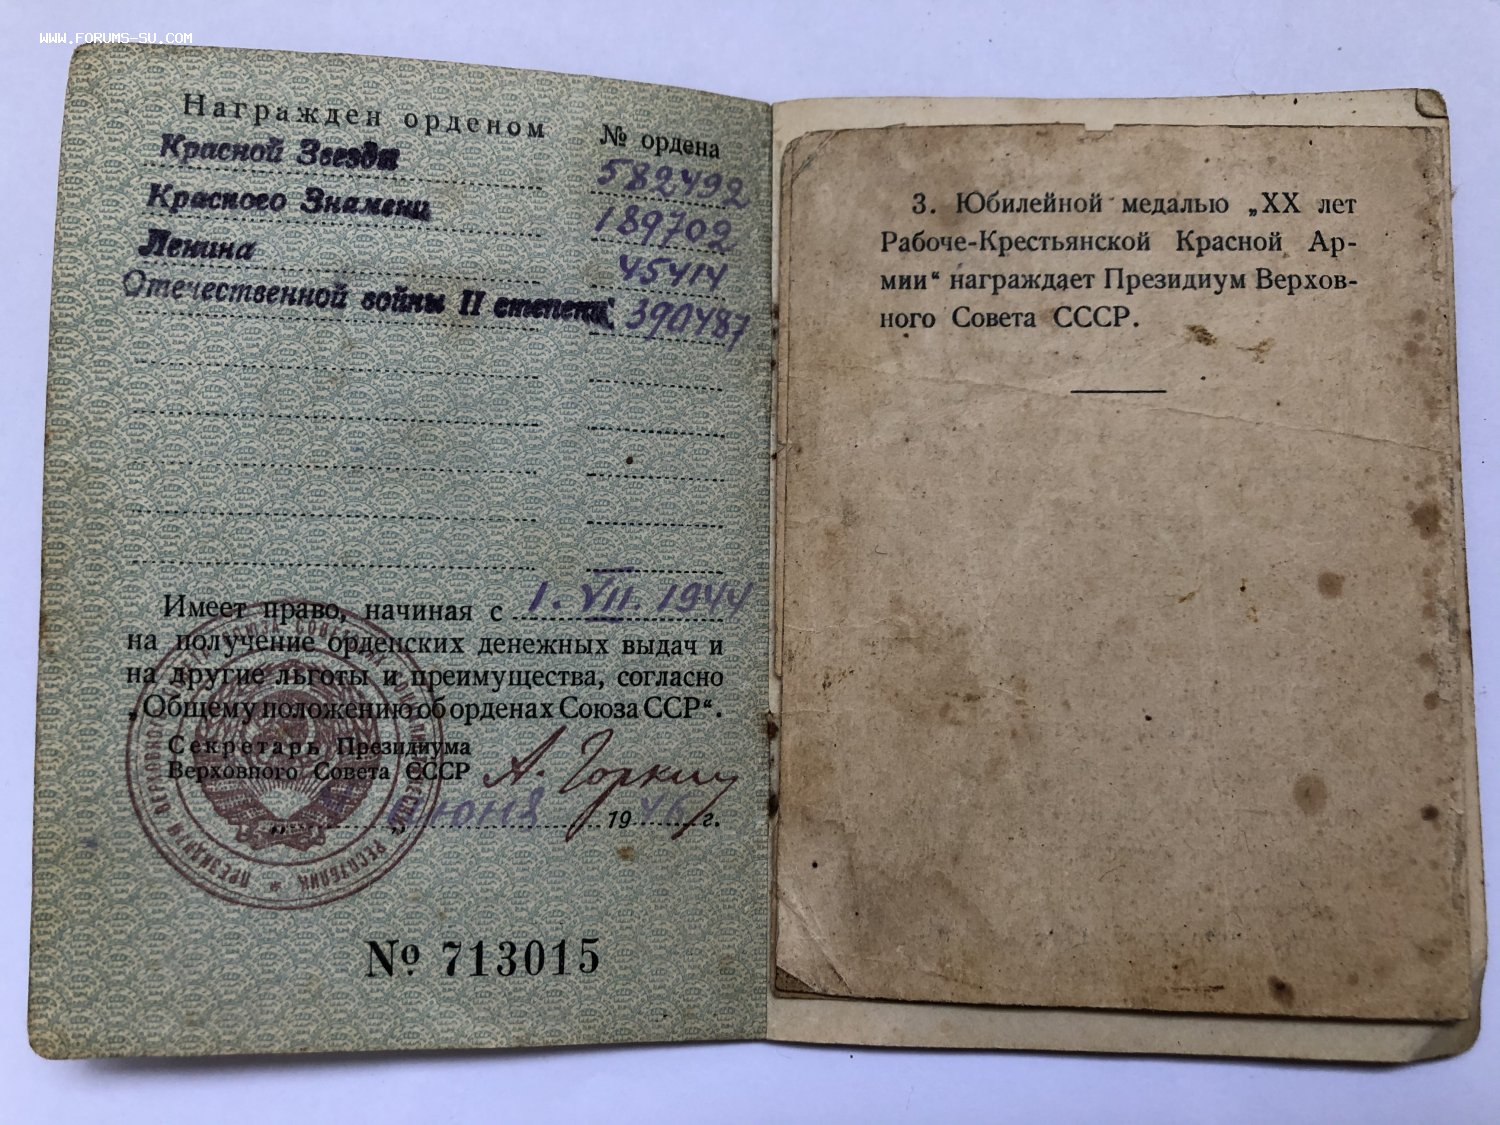 WWW.FORUMS-SU.COM
Награжден орденом № ордена
Красной Звезды 582492
Красного Знамени 189702
Ленина 45414
Отечественной войны II степени 390487
Имеет право, начиная с 1. VII. 1944
на получение орденских денежных выдач и
на другие льготы и преимущества, согласно
„Общему положению об орденах Союза ССР“.
Секретарь Президиума
Верховного Совета СССР А. Горкин
июня 1946 г.
№ 713015
3. Юбилейной медалью „XX лет
Рабоче-Крестьянской Красной Ар-
мии“ награждает Президиум Верхов-
ного Совета СССР.